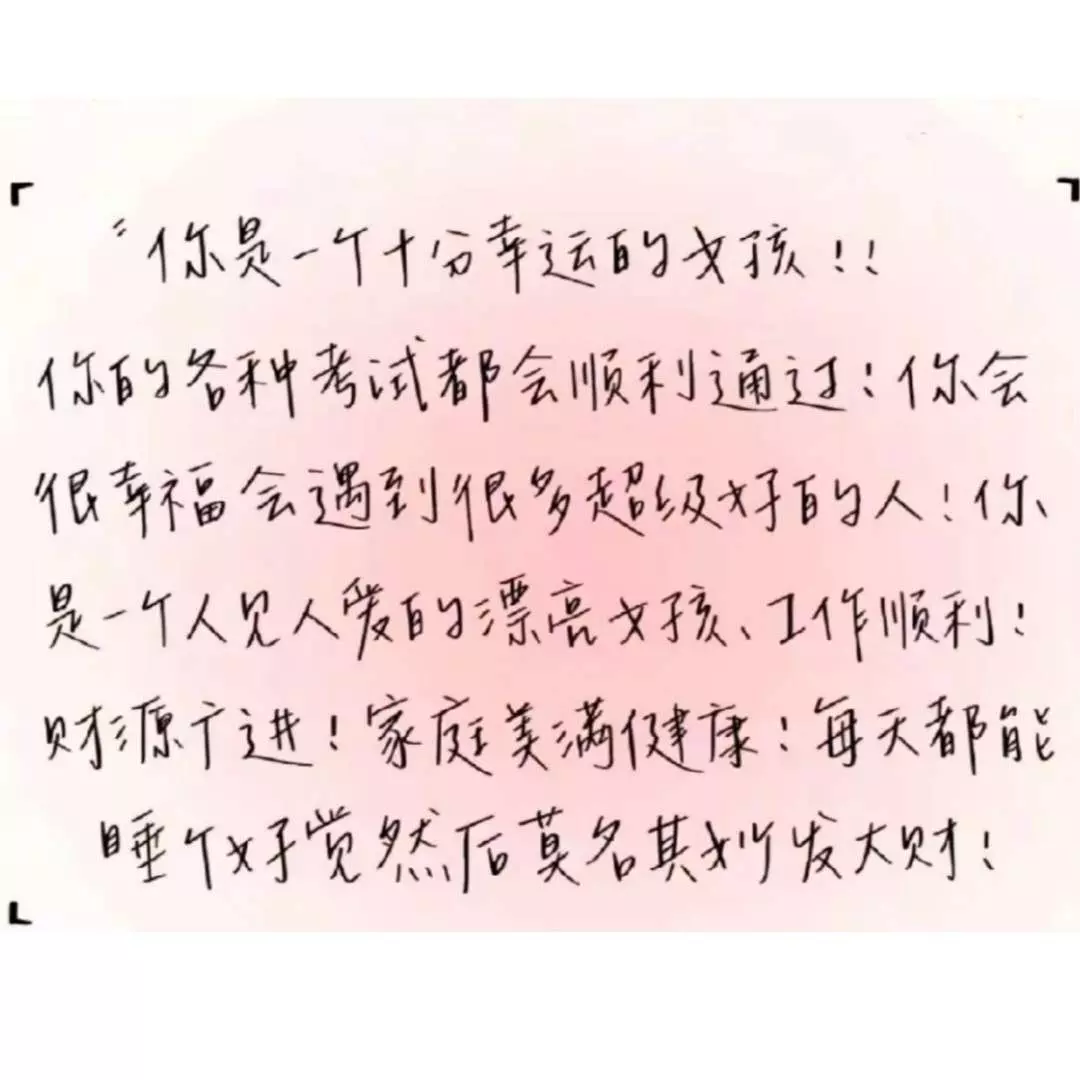 “你是一个十分幸运的女孩！！
你的各种考试都会顺利通过！你会
很幸福会遇到很多超级好的人！你
是一个人见人爱的漂亮女孩、工作顺利！
财源广进！家庭美满健康！每天都能
睡个好觉然后莫名其妙发大财！